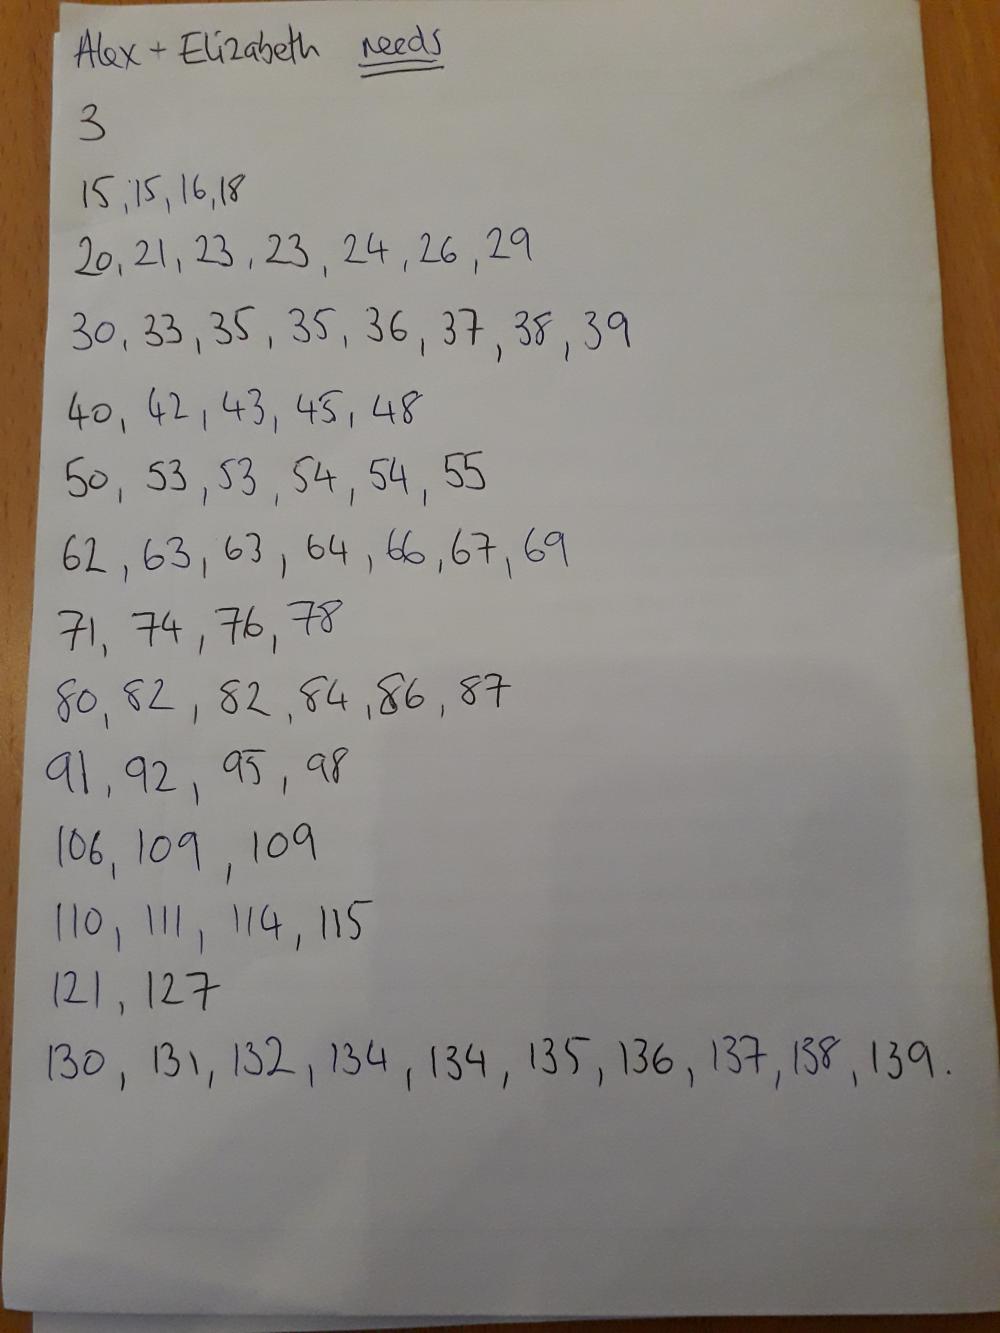 Alex + Elizabeth needs
3
15, 15, 16, 18
20, 21, 23, 23, 24, 26, 29
30, 33, 35, 35, 36, 37, 38, 39
40, 42, 43, 45, 48
50, 53, 53, 54, 54, 55
62, 63, 63, 64, 66, 67, 69
71, 74, 76, 78
80, 82, 82, 84, 86, 87
91, 92, 95, 98
106, 109, 109
110, 111, 114, 115
121, 127
130, 131, 132, 134, 134, 135, 136, 137, 138, 139.